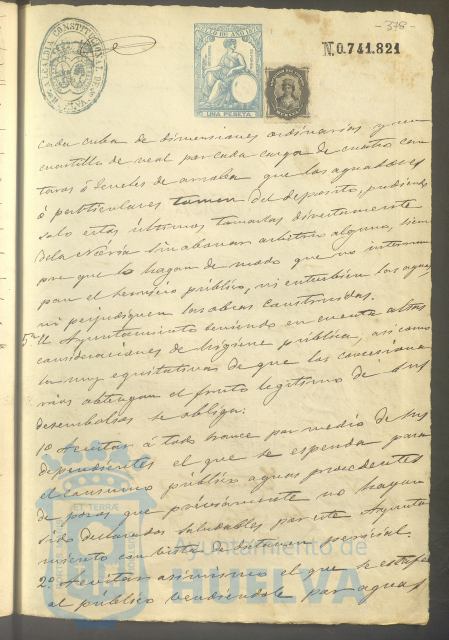 - 378 -
ALCALDIA CONSTITUCIONAL
SELLO DE AÑO 1874
UNA PESETA
N.0.741.821
cada cuba de dimensiones ordinarias y un
cuartillo de real por cada carga de cuatro can
taros ó seneles de arroba que los aguadores
ó particulares tomen del deposito, pudiendo
solo estos últimos tomarlas directamente
de la tuberia sin abonar arbitrio alguno, siem
pre que lo hagan de modo que no interrum
pan el servicio público, ni enturbien las aguas
ni perjudiquen las obras construidas.
5.ª El Ayuntamiento teniendo en cuenta altas
consideraciones de higiene pública, asi como
las muy equitativas de que los concesiona
rios obtengan el fruto legitimo de sus
desembolsos se obliga:
1º A evitar á todo trance por medio de sus
dependientes el que se espenda para
el consumo público aguas procedentes
de pozos que préviamente no hayan
sido declarados saludables por este Ayunta
miento con vista de dictamen pericial.
2º A evitar asimismo el que se estafe
al público vendiendole por aguas
Ayuntamiento de
HUELVA